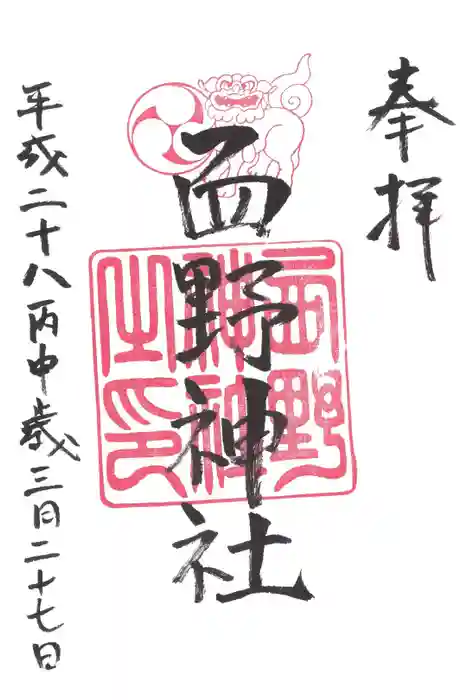 奉拝
西野神社
平成二十八丙申歳三月二十七日
西野神社之印